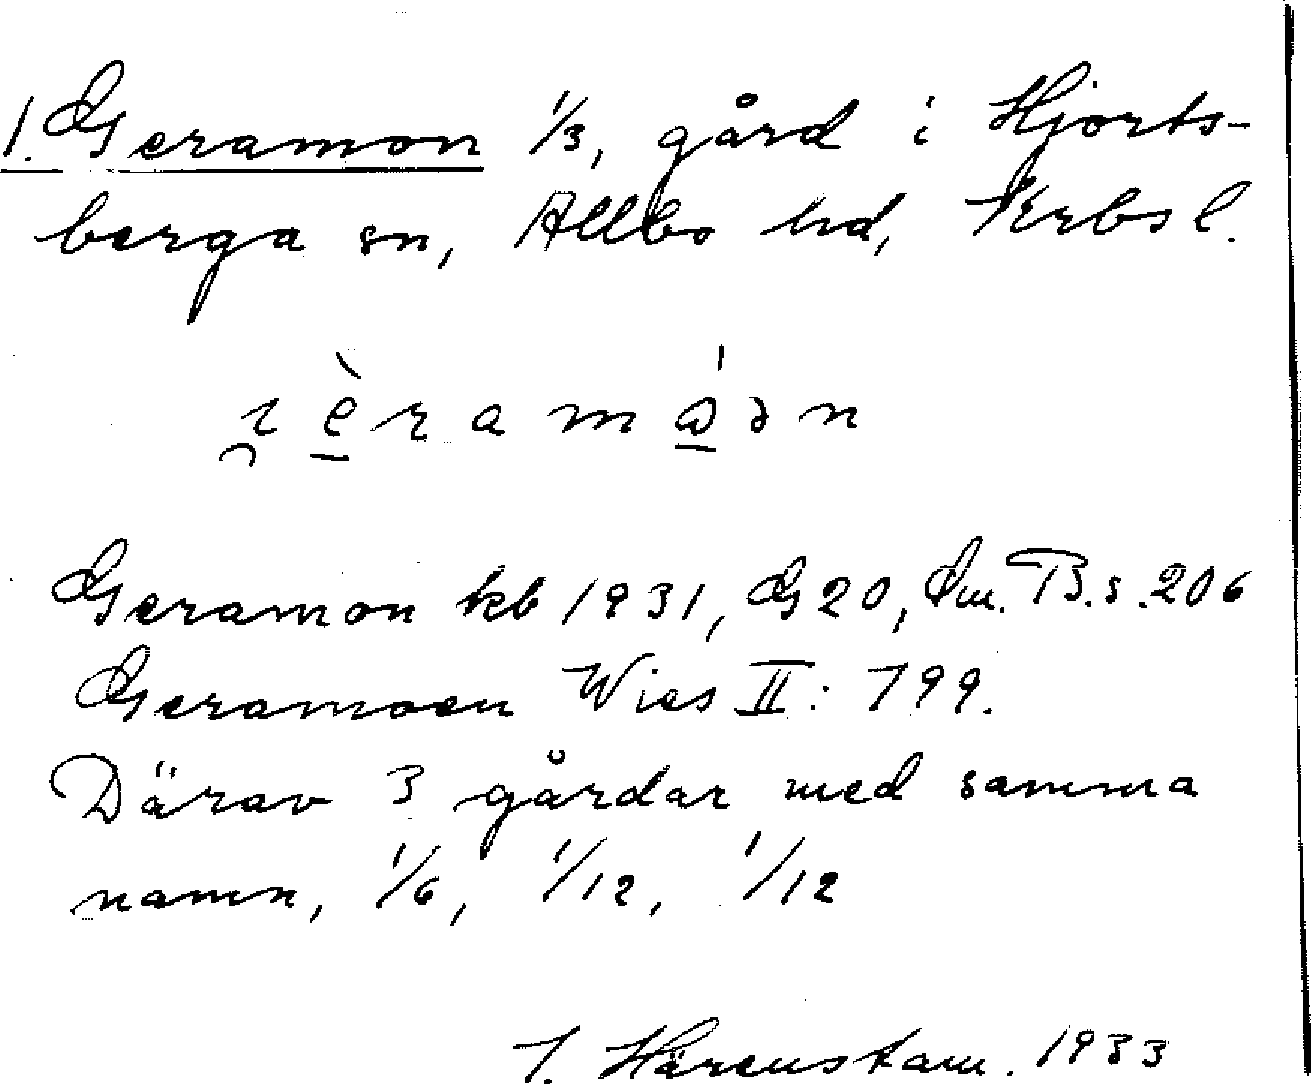 1. Geramon 1/3, gård i Hjorts-
berga sn, Allbo hd, Krbs l.
Geramon kb 1931, G 20, Sm. B. s. 206
Geramoen Wies II: 799.
Därav 3 gårdar med samma
namn, 1/6, 1/12, 1/12
Härenstam. 1933